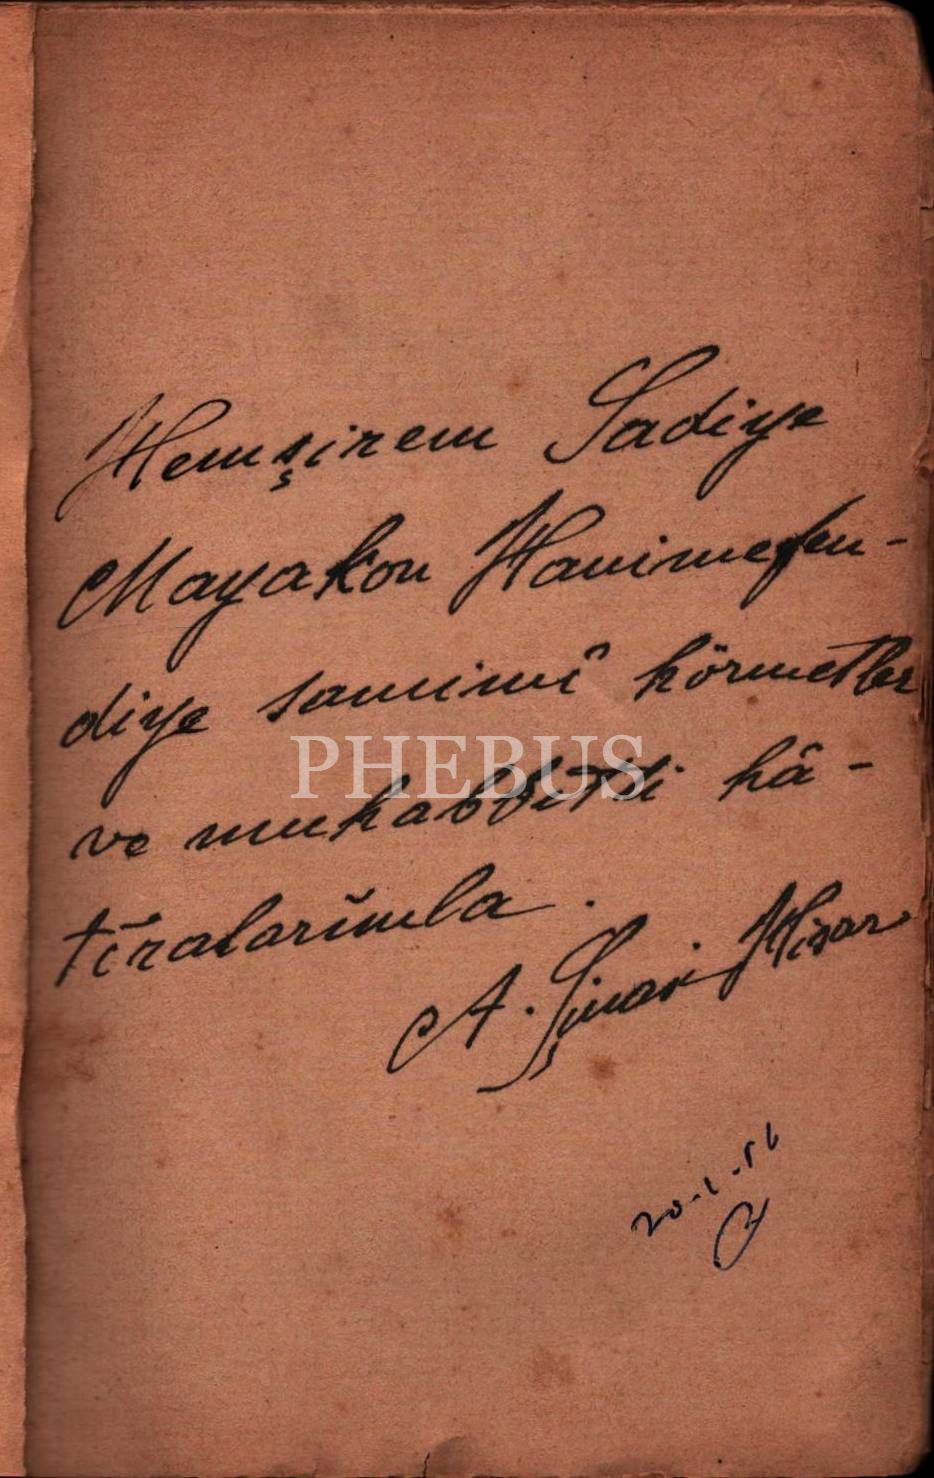 Hemşirem Sadiye
Mayakon Hanımefen-
diye samimî hörmetler
PHEBUS
ve muhabbetli hâ-
tıralarımla.
A. Şinasi Hisar
20-1-51